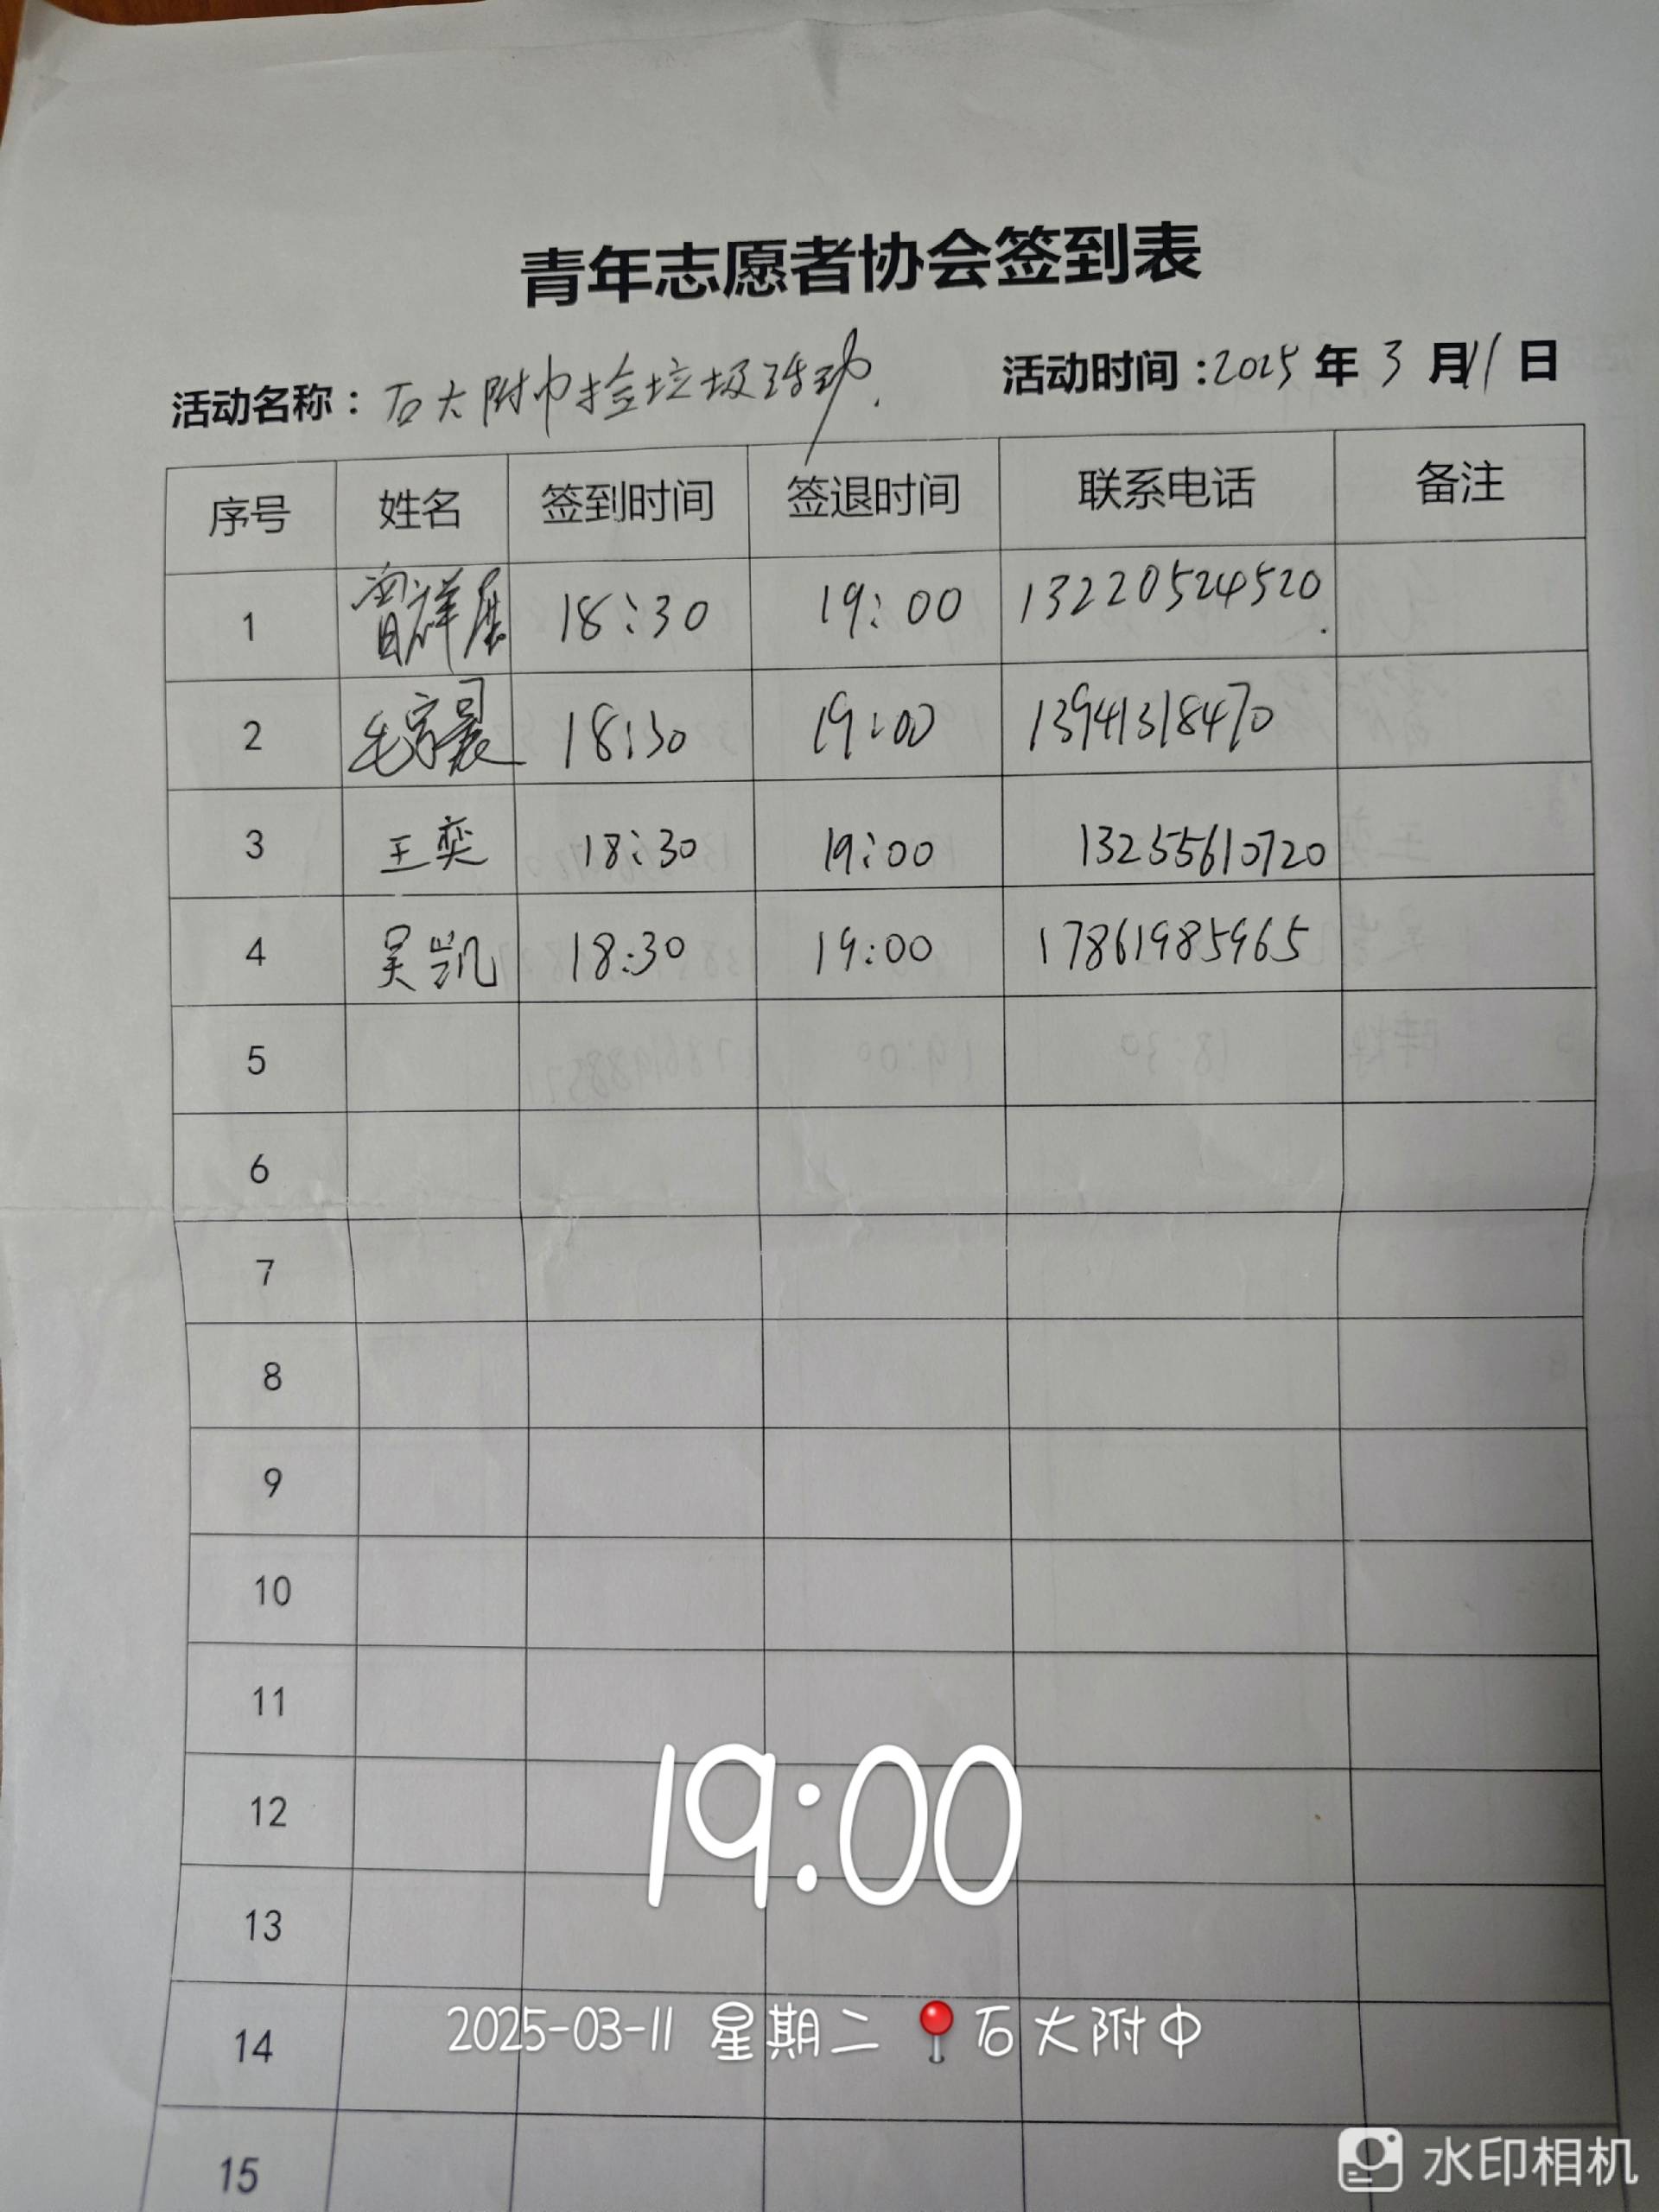 青年志愿者协会签到表
活动名称：石大附中捡垃圾活动. 活动时间：2025年3月11日
序号 姓名 签到时间 签退时间 联系电话 备注
1 祥 18:30 19:00 13220524520
2 毛 晨 18:30 19:00 13941318470
3 王奕 18:30 19:00 13255610720
4 吴凯 18:30 19:00 17861985965
5
6
7
8
9
10
11
12
13
14
15
19:00
2025-03-11 星期二 石大附中
水印相机